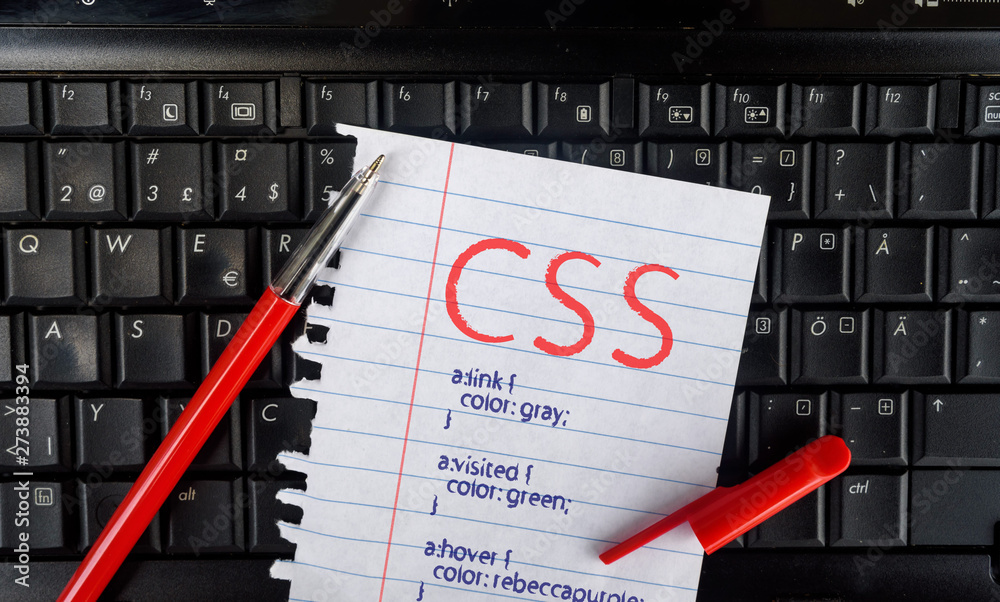 f2 f3 f4 f5 f6 f7 f8 f9 f10 f11 f12 num
" # ¤ % 8 9 0 ? `
2 @ 3 £ 4 $ 5 } + \ ´
Q W E € R P Å ^
A S D 3 Ö Ä '
Y C - + ↑
fn alt ctrl
CSS
a:link {
color: gray;
}
a:visited {
color: green;
}
a:hover {
color: rebeccapurple;
}
Adobe Stock | #273883394